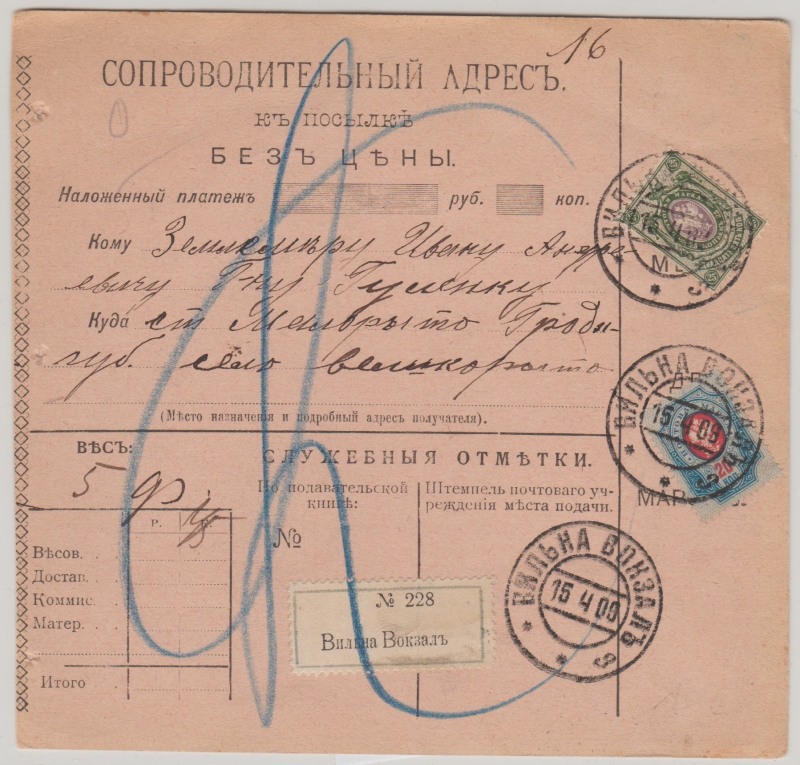 16
СОПРОВОДИТЕЛЬНЫЙ АДРЕСЪ.
КЪ ПОСЫЛКѢ
БЕЗЪ ЦѢНЫ.
Наложенный платежъ руб. коп.
Кому Землемѣру Ивану Андре
евичу Гну Гуленку
Куда ст Малорыто Гродн-
губ. село великорыто
(Мѣсто назначенія и подробный адресъ получателя).
ВѢСЪ:
5 ф.
СЛУЖЕБНЫЯ ОТМѢТКИ.
По подавательской
книгѣ:
Штемпель почтоваго уч-
режденія мѣста подачи.
Р.
№
Вѣсов.
Достав.
Коммис.
Матер.
Итого
№ 228
Вильна Вокзалъ
ВИЛЬНА ВОКЗАЛЪ
15 4 09
20
МАР
ВИЛЬНА ВОКЗАЛЪ
15 4 09